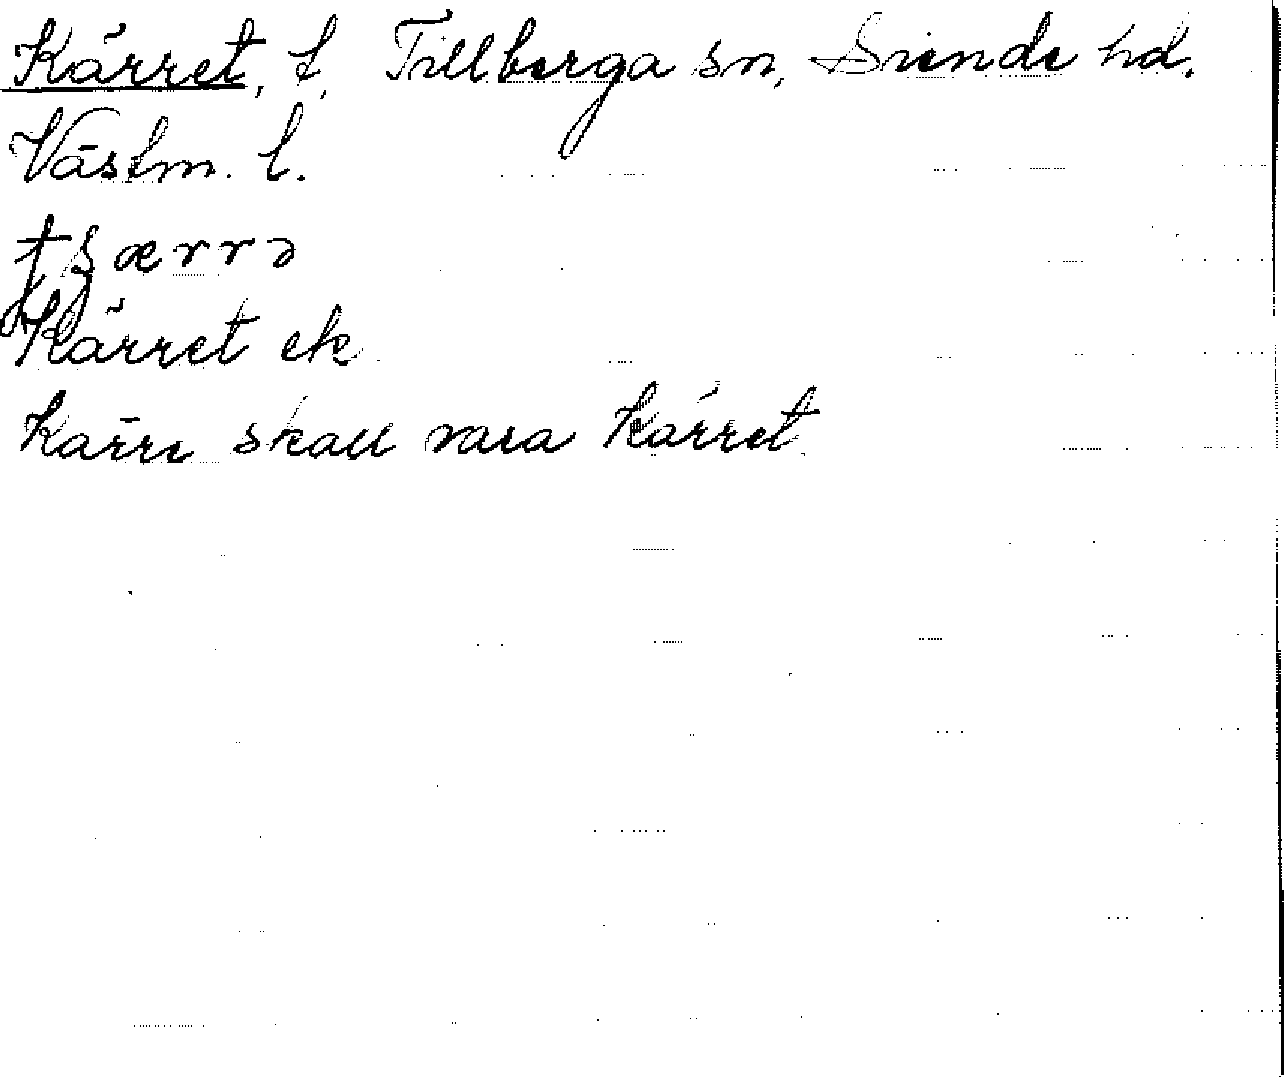 Kärret, t, Tillberga sn, Siende hd.
Västm. l.
tʂærrə
Kärret ek
Kärre skall vara Kärret